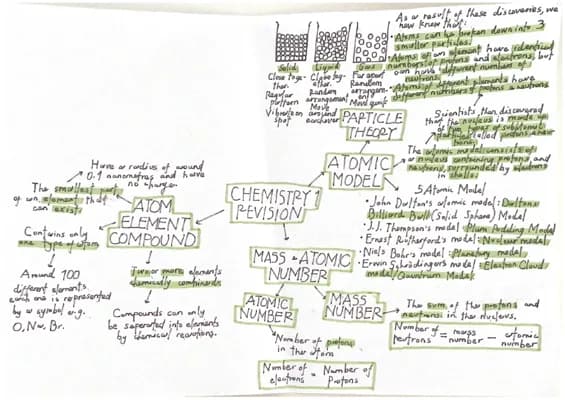 As a result of these discoveries, we
now know that:
• Atoms can be broken down into 3
smaller particles.
• Atoms of an element have identical
numbers of protons and electrons, but
can have different numbers of
neutrons.
• Atoms of different elements have
different numbers of protons & neutrons
Solid
Close toge-
ther.
Regular
pattern
Vibrate on
spot
Liquid
Close tog-
ether.
Random
arrangement
Move
around
eachover
Gas
Far apart
Random
arrangem-
ent
Move quick
PARTICLE
THEORY
ATOMIC
MODEL
Scientists then discovered
that the nucleus is made up
of two types of subatomic
particle called protons and neu-
trons.
The atomic model consists of
a nucleus containing protons and
neutrons, surrounded by electrons
in shells.
5 Atomic Model
• John Dalton's atomic model: Dalton's
Billiard Ball (Solid Sphere) Model
• J.J. Thompson's model: Plum Pudding Model
• Ernest Rutherford's model: Nuclear model
• Niels Bohr's model: Planetary model
• Erwin Schrödinger's model: Electron Cloud
model/Quantum Model
CHEMISTRY 1
REVISION
Have a radius of around
0.1 nanometres and have
no charge.
The smallest part
of an element that
can exist.
ATOM
ELEMENT
COMPOUND
Contains only
one type of atom
Around 100
different elements
each one is represented
by a symbol e.g.
O, Na, Br.
Two or more elements
chemically combined.
Compounds can only
be seperated into elements
by chemical reactions.
MASS & ATOMIC
NUMBER
ATOMIC
NUMBER
MASS
NUMBER
Number of protons
in the atom
The sum of the protons and
neutrons in the nucleus.
Number of neutrons = mass number - atomic number
Number of electrons = Number of Protons